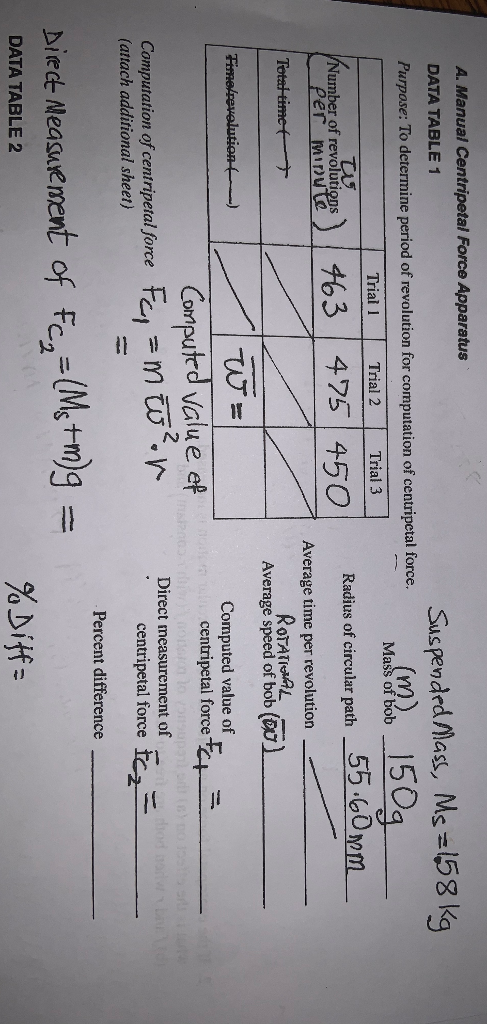 A. Manual Centripetal Force Apparatus
Suspended Mass, Ms = 1.58 kg
DATA TABLE 1
Purpose: To determine period of revolution for computation of centripetal force.
(m)
Mass of bob 150g
Trial 1 Trial 2 Trial 3
ω
(Number of revolutions
per minute) 463 475 450
Total time ( )
Time/revolution ( ) ω̅ =
Radius of circular path 55.60 mm
Average time per revolution
ROTATIONAL
Average speed of bob (ω̅)
Computed value of
Computation of centripetal force Fc₁ = m ω̅² · r
(attach additional sheet) =
Computed value of
centripetal force Fc₁ =
Direct measurement of
centripetal force Fc₂ =
Percent difference
Direct Measurement of Fc₂ = (Ms + m)g =
% Diff =
DATA TABLE 2